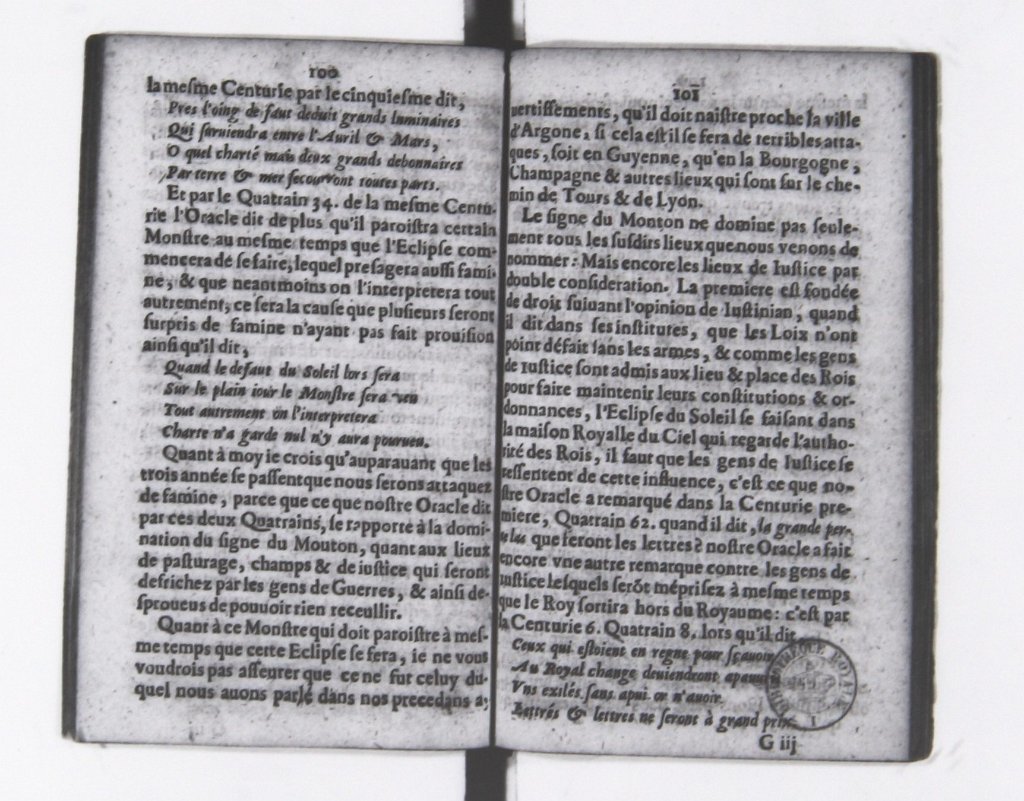 100
la mesme Centurie par le cinquiesme dit,
Pres l'oing de faut deduit grands luminaires
Qui suruiendra entre l'Auril & Mars,
O quel charté mais deux grands debonnaires
Par terre & mer secourront toutes parts.
Et par le Quatrain 34. de la mesme Centu-
rie l'Oracle dit de plus qu'il paroistra certain
Monstre au mesme temps que l'Eclipse com-
mencera de se faire, lequel presagera aussi fami-
ne, & que neantmoins on l'interpretera tout
autrement, ce sera la cause que plusieurs seront
surpris de famine n'ayant pas fait prouision
ainsi qu'il dit,
Quand le defaut du Soleil lors sera
Sur le plain iour le Monstre sera veu
Tout autrement on l'interpretera
Charte n'a garde nul n'y aura pourueu.
Quant à moy ie crois qu'auparauant que les
trois année se passent que nous serons attaquez
de famine, parce que ce que nostre Oracle dit
par ces deux Quatrains, se rapporte à la domi-
nation du signe du Mouton, quant aux lieux
de pasturage, champs & de iustice qui seront
defrichez par les gens de Guerres, & ainsi de-
sproueus de pouuoir rien receullir.
Quant à ce Monstre qui doit paroistre à mes-
me temps que cette Eclipse se fera, ie ne vous
voudrois pas asseurer que ce ne fut celuy du-
quel nous auons parlé dans nos precedans a-
101
uertissements, qu'il doit naistre proche la ville
d'Argone, si cela est il se fera de terribles atta-
ques, soit en Guyenne, qu'en la Bourgogne,
Champagne & autres lieux qui sont sur le che-
min de Tours & de Lyon.
Le signe du Monton ne domine pas seule-
ment tous les susdits lieux que nous venons de
nommer: Mais encore les lieux de Iustice par
double consideration. La premiere est fondée
de droit suiuant l'opinion de Iustinian, quand
il dit dans ses institutes, que les Loix n'ont
point défait sans les armes, & comme les gens
de iustice sont admis aux lieu & place des Rois
pour faire maintenir leurs constitutions & or-
donnances, l'Eclipse du Soleil se faisant dans
la maison Royalle du Ciel qui regarde l'autho-
rité des Rois, il faut que les gens de Iustice se
ressentent de cette influence, c'est ce que no-
stre Oracle a remarqué dans la Centurie pre-
miere, Quatrain 62. quand il dit, la grande per-
te las que feront les lettres? nostre Oracle a fait
encore vne autre remarque contre les gens de
iustice lesquels serõt méprisez à mesme temps
que le Roy sortira hors du Royaume: c'est par
la Centurie 6. Quatrain 8. lors qu'il dit
Ceux qui estoient en regne pour sçauoir
Au Royal change deuiendront apauuris
Vns exilés sans apui or n'auoir
Lettrés & lettres ne seront à grand prix.
G iij